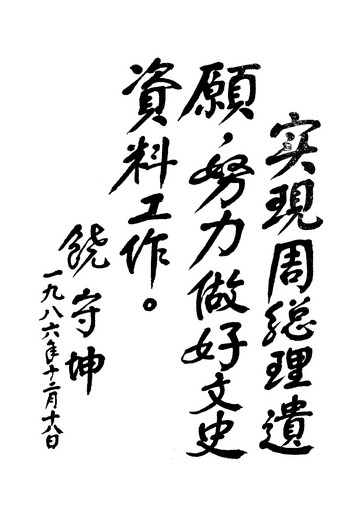 实现周总理遺
願，努力做好文史
資料工作。
饶守坤
一九八六年十二月十八日